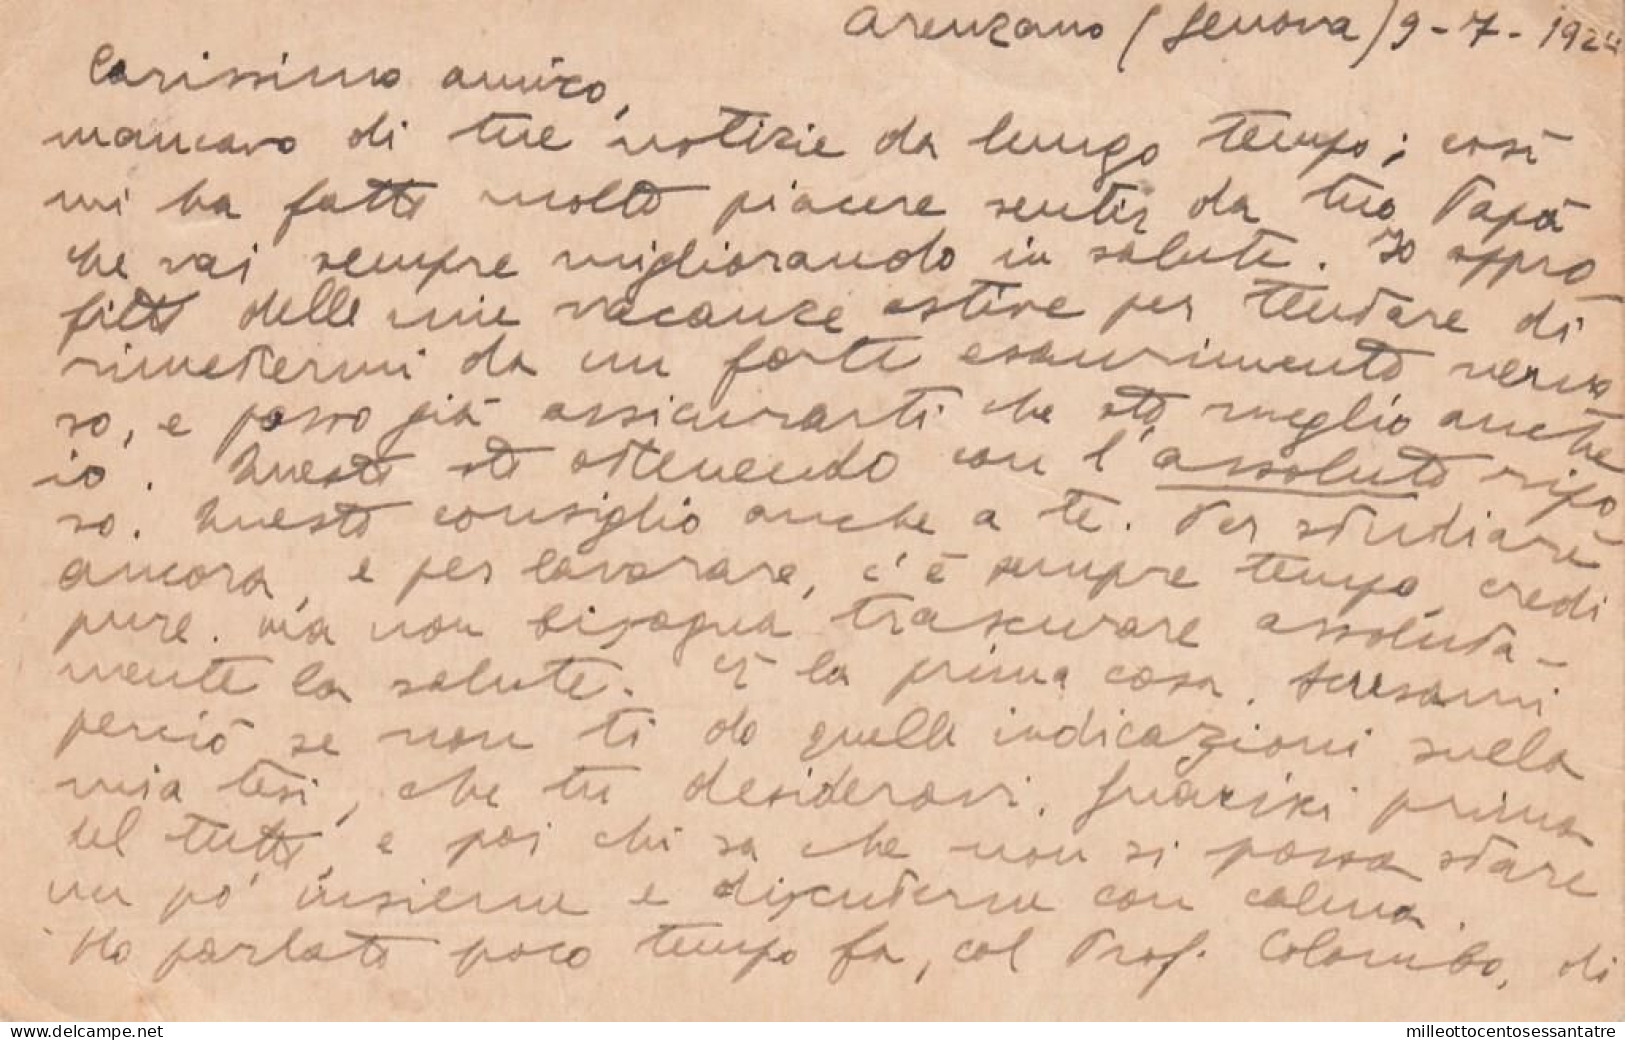 Arenzano (Genova) 9-7-192
Carissimo amico,
mancavo di tue notizie da lungo tempo; così
mi ha fatto molto piacere sentir da tuo Papà
che vai sempre migliorando in salute. Io appro
fitto delle mie vacanze estive per tentare di
rimettermi da un forte esaurimento nervo
so, e posso già assicurarti che stò meglio anche
io. Questo sto ottenendo con l'assoluto ripo
so. Questo consiglio anche a te. Per studiare
ancora, e per lavorare, c'è sempre tempo, credi
pure. Ma non bisogna trascurare assoluta-
mente la salute. È la prima cosa. Scusami
perciò se non ti do quelle indicazioni sulla
mia tesi, che tu desideravi. Guarisci prima
del tutto, e poi chi sa che non si possa stare
un po' insieme e discuterne con calma.
Ho parlato poco tempo fa, col Prof. Colombo, di
www.delcampe.net
milleottocentosessantatre